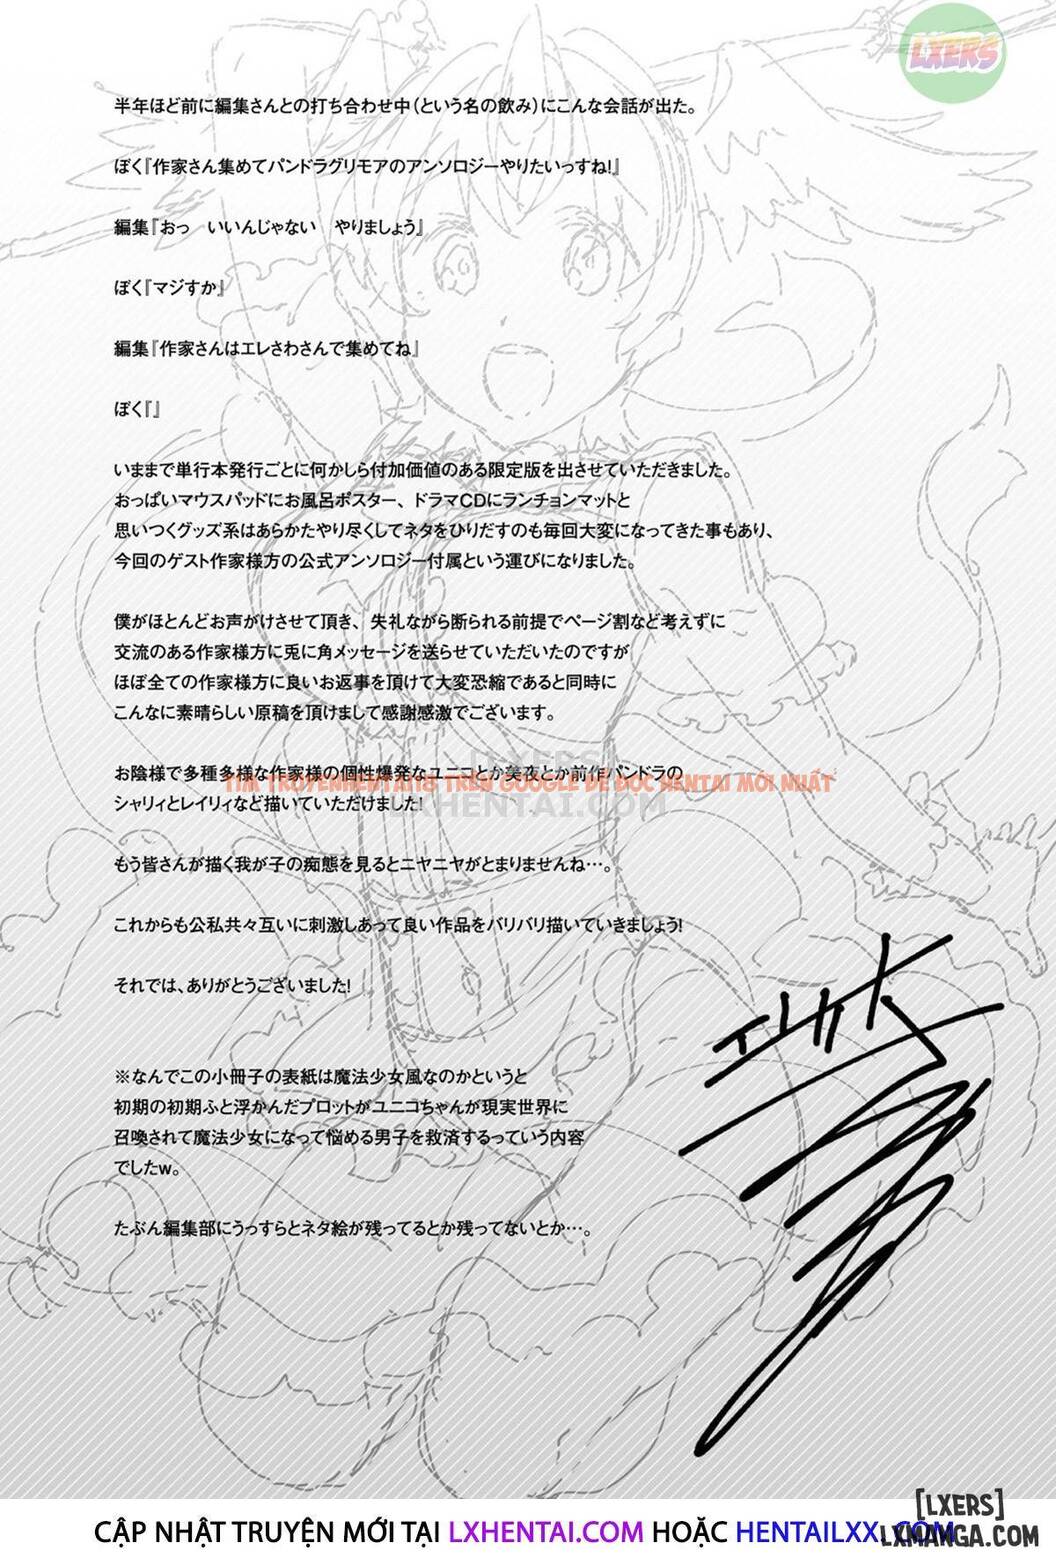 LXERS
半年ほど前に編集さんとの打ち合わせ中(という名の飲み)にこんな会話が出た。
ぼく『作家さん集めてパンドラグリモアのアンソロジーやりたいっすね!』
編集『おっ　いいんじゃない　やりましょう』
ぼく『マジすか』
編集『作家さんはエレさわさんで集めてね』
ぼく『』
いままで単行本発行ごとに何かしら付加価値のある限定版を出させていただきました。
おっぱいマウスパッドにお風呂ポスター、ドラマCDにランチョンマットと
思いつくグッズ系はあらかたやり尽くしてネタをひりだすのも毎回大変になってきた事もあり、
今回のゲスト作家様方の公式アンソロジー付属という運びになりました。
僕がほとんどお声がけさせて頂き、失礼ながら断られる前提でページ割など考えずに
交流のある作家様方に兎に角メッセージを送らせていただいたのですが
ほぼ全ての作家様方に良いお返事を頂けて大変恐縮であると同時に
こんなに素晴らしい原稿を頂けまして感謝感激でございます。
LXERS
お陰様で多種多様な作家様の個性爆発なユニコとか美夜とか前作パンドラの
TÌM TRUYENHENTAI18 TRÊN GOOGLE ĐỂ ĐỌC HENTAI MỚI NHẤT
シャリィとレイリィなど描いていただけました!
LXHENTAI.COM
もう皆さんが描く我が子の痴態を見るとニヤニヤがとまりませんね…。
これからも公私共々互いに刺激しあって良い作品をバリバリ描いていきましょう!
それでは、ありがとうございました!
※なんでこの小冊子の表紙は魔法少女風なのかというと
初期の初期ふと浮かんだプロットがユニコちゃんが現実世界に
召喚されて魔法少女になって悩める男子を救済するっていう内容
でしたw。
たぶん編集部にうっすらとネタ絵が残ってるとか残ってないとか…。
[LXERS]
CẬP NHẬT TRUYỆN MỚI TẠI LXHENTAI.COM HOẶC HENTAILXX.COM
LXMANGA.COM